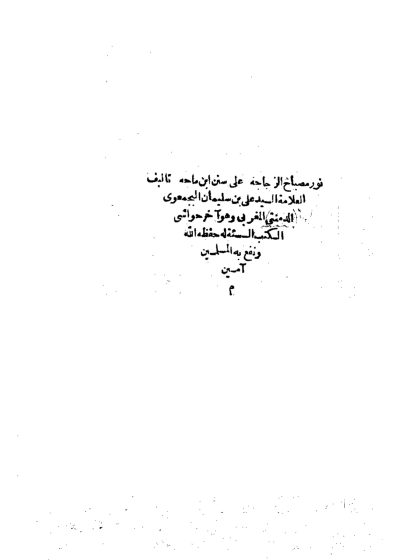 نور مصباح الزجاجه على سنن ابن ماجه تاليف
العلامة السيد على بن سليمان البجمعوى
الدمنتي المغربى وهو آخر حواشى
الكتب الستة له حفظه الله
ونفع به المسلمين
آمين
م